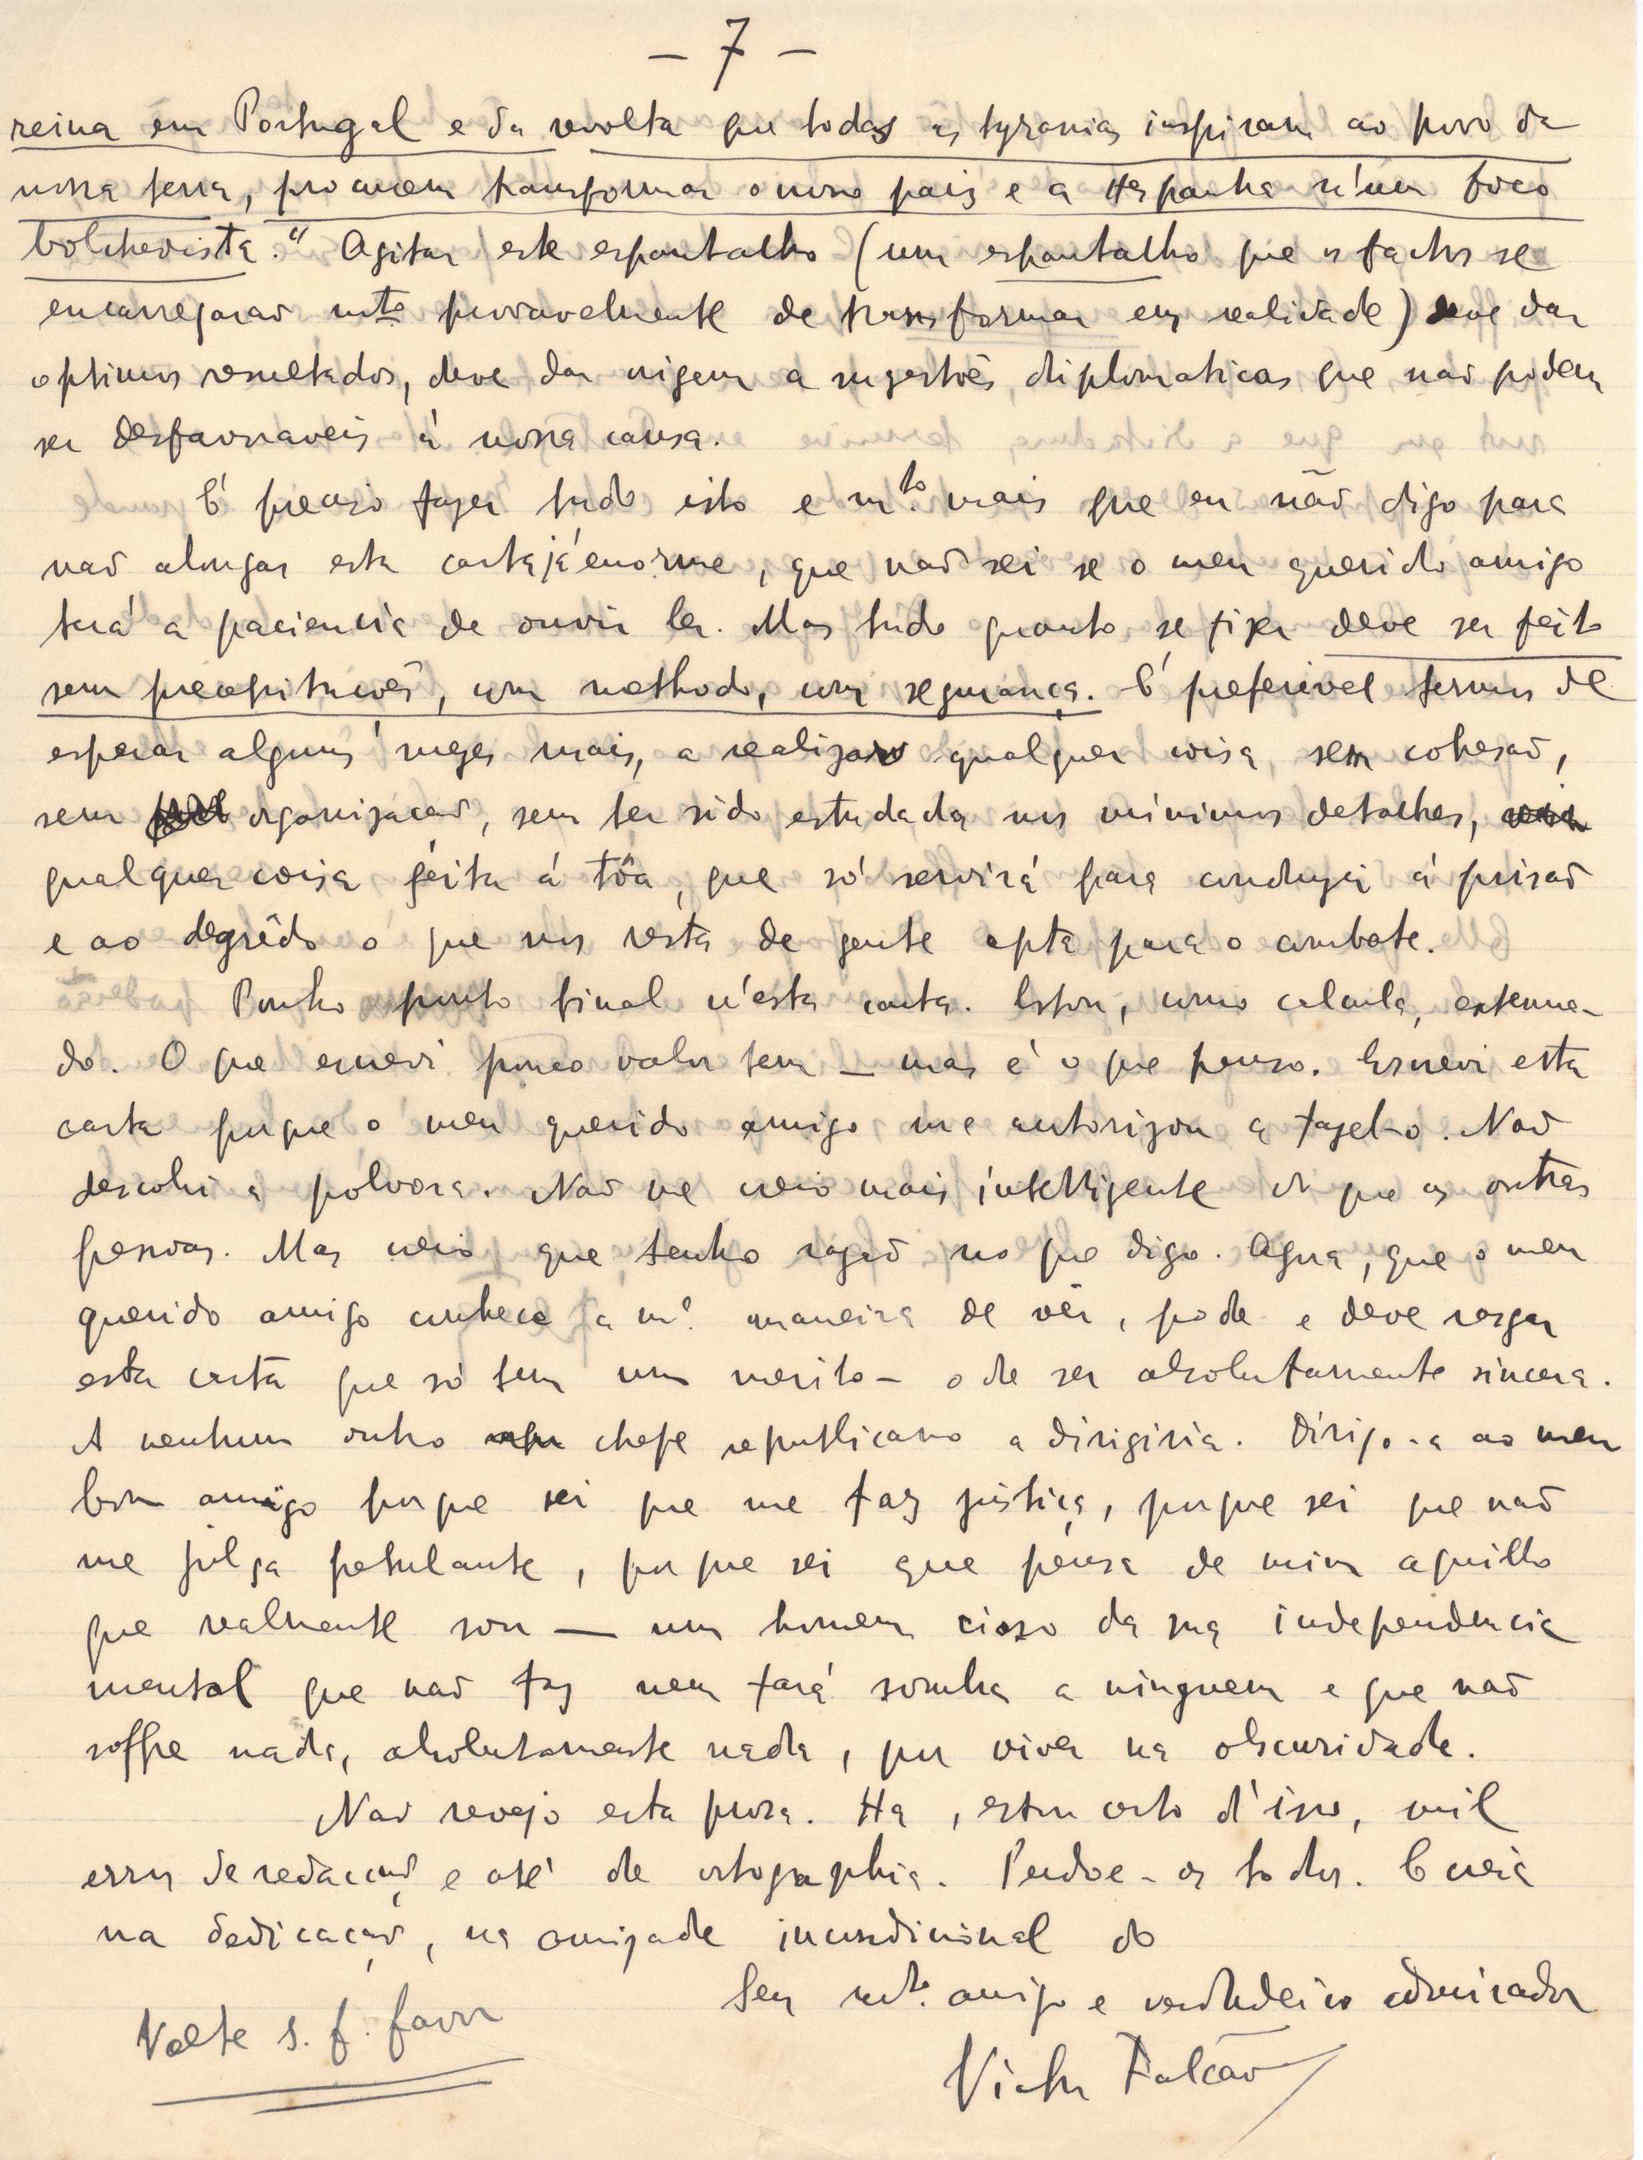 - 7 -
reina em Portugal e da revolta que todas as tyranias inspiram ao povo da
nossa terra, procurem transformar o nosso pais e a Hespanha n'um foco
bolchevista." Agitar este espantalho (um espantalho que os factos se
encarregarão mto provavelmente de transformar em realidade) deve dar
optimos resultados, deve dar origem a sugestões diplomaticas que não podem
ser desfavoraveis á nossa causa.
É preciso fazer tudo isto e mto. mais que eu não digo para
não alongar esta carta já enorme, que não sei se o meu querido amigo
terá a paciencia de ouvir ler. Mas tudo quanto se fizer deve ser feito
sem precipitações, com methodo, com segurança. É preferivel termos de
esperar alguns mezes mais, a realizar qualquer coisa sem cohesão,
sem organização, sem ter sido estudada nos minimos detalhes,
qualquer coisa feita á tôa, que só servirá para conduzir á prisão
e ao degrêdo o que nos resta de gente apta para o combate.
Ponho ponto final n'esta carta. Estou, como calcula, extenua-
do. O que escrevi pouco valor tem – mas é o que penso. Escrevi esta
carta porque o meu querido amigo me autorizou a fazel-o. Não
descobri a pólvora. Não me creio mais intelligente do que as outras
pessoas. Mas creio que tenho razão no que digo. Agora, que o meu
querido amigo conhece a mª. maneira de vêr, pode e deve rasgar
esta carta que só tem um merito – o de ser absolutamente sincera.
A nenhum outro chefe republicano a dirigiria. Dirijo-a ao meu
bom amigo porque sei que me faz justiça, porque sei que não
me julga petulante, porque sei que pensa de mim aquillo
que realmente sou — um homem cioso da sua independencia
mental que não faz nem fará sombra a ninguem e que não
soffre nada, absolutamente nada, por viver na obscuridade.
Não revejo esta prosa. Ha, estou certo d'isso, mil
erros de redacção e até de ortographia. Perdoe-os todos. E creia
na dedicação, na amizade incondicional do
Seu mto. amigo e verdadeiro admirador
Volte s. f. favor
Victor Falcão